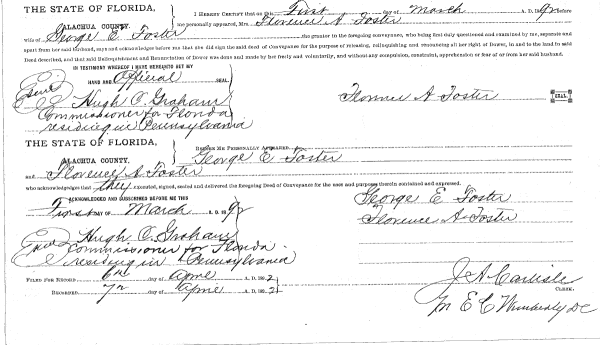 THE STATE OF FLORIDA,
ALACHUA COUNTY.
I HEREBY CERTIFY that on the First day of March 1892 before
me personally appeared, Mrs. Florence A Foster
wife of George E. Foster the grantor in the foregoing conveyance, who being first duly questioned and examined by me, separate and
apart from her said husband, says and acknowledges before me that she did sign the said deed of Conveyance for the purpose of releasing, relinquishing and renouncing all her right of Dower, in and to the land in said
Deed described, and that said Relinquishment and Renunciation of Dower was done and made by her freely and voluntarily, and without any compulsion, constraint, apprehension or fear of or from her said husband.
IN TESTIMONY WHEREOF I HAVE HEREUNTO SET MY
HAND AND Official SEAL.
Seal
Hugh C. Graham
Commissioner for Florida
residing in Pennsylvania
Florence A Foster
SEAL.
THE STATE OF FLORIDA,
ALACHUA COUNTY.
BEFORE ME PERSONALLY APPEARED
George E Foster
and Florence A Foster
who acknowledges that they executed, signed, sealed and delivered the foregoing Deed of Conveyance for the uses and purposes therein contained and expressed.
ACKNOWLEDGED AND SUBSCRIBED BEFORE ME THIS
First DAY OF March A. D. 1892
George E Foster
Florence A Foster
Seal
Hugh C. Graham
Commissioner for Florida
residing in Pennsylvania
FILED FOR RECORD 6th day of April A. D. 1892
RECORDED 7th day of April A. D. 1892
J A Carlisle
CLERK.
E C Wimberly DC